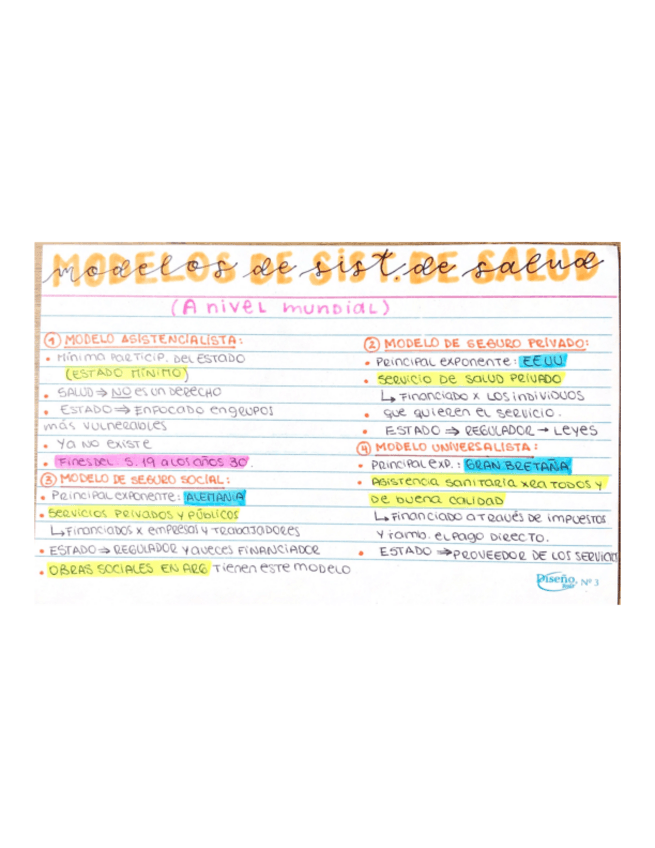 modelos de sist. de salud
(A nivel mundial)
① MODELO ASISTENCIALISTA:
• Mínima particip. del estado
(ESTADO MÍNIMO)
• SALUD ⇒ NO es un derecho
• ESTADO ⇒ Enfocado en grupos
más vulnerables
• Ya no existe
• Fines del S. 19 a los años 30.
③ MODELO DE SEGURO SOCIAL:
• Principal exponente: ALEMANIA
• Servicios privados y públicos
↳ Financiados x empresas y trabajadores
• ESTADO ⇒ REGULADOR y a veces FINANCIADOR
• OBRAS SOCIALES EN ARG tienen este modelo
② MODELO DE SEGURO PRIVADO:
• Principal exponente: EEUU
• Servicio de salud privado
↳ Financiado x los individuos
• que quieren el servicio.
• ESTADO ⇒ REGULADOR → Leyes
④ MODELO UNIVERSALISTA:
• Principal exp.: GRAN BRETAÑA
• Asistencia sanitaria xra todos y
de buena calidad
↳ Financiado a través de impuestos
y tamb. el pago directo.
• ESTADO ⇒ PROVEEDOR DE LOS SERVICIOS
Diseño Nº 3